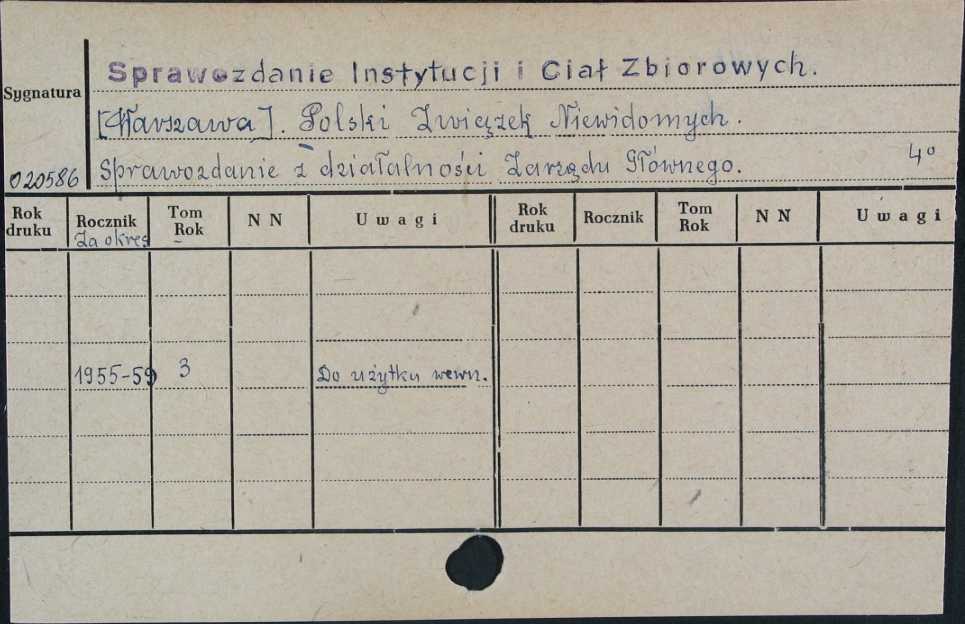 Sprawozdanie Instytucji i Ciał Zbiorowych.
Sygnatura
[Warszawa]. Polski Związek Niewidomych.
020586 Sprawozdanie z działalności Zarządu Głównego. 4º
Rok druku Rocznik Za okres Tom Rok N N Uwagi Rok druku Rocznik Tom Rok N N Uwagi
1955-59 3 Do użytku wewn.